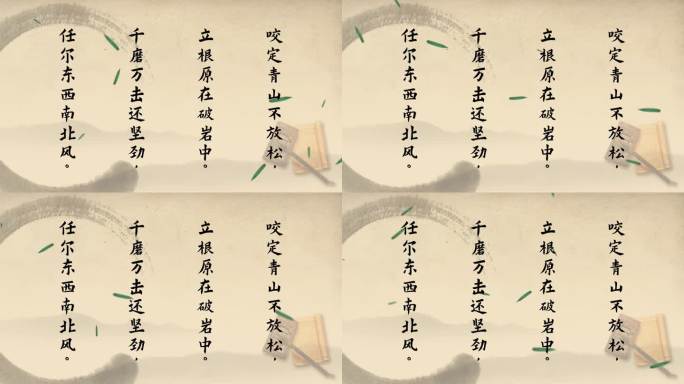 咬定青山不放松，
立根原在破岩中。
千磨万击还坚劲，
任尔东西南北风。
咬定青山不放松，
立根原在破岩中。
千磨万击还坚劲，
任尔东西南北风。
咬定青山不放松，
立根原在破岩中。
千磨万击还坚劲，
任尔东西南北风。
咬定青山不放松，
立根原在破岩中。
千磨万击还坚劲，
任尔东西南北风。